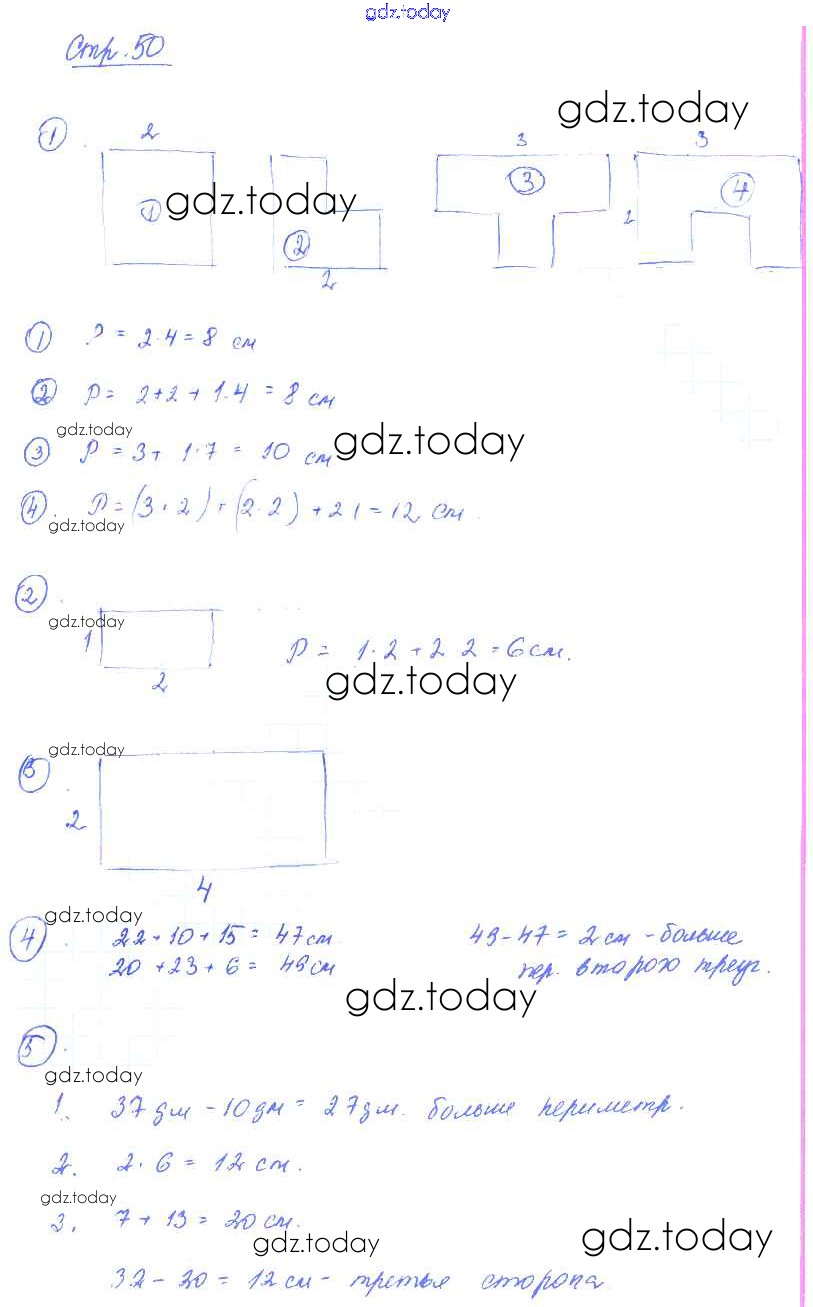 gdz.today
Стр. 50
gdz.today
1 . 2 3 3
1 gdz.today 3 4
2 2
2
1 P = 2·4 = 8 см
2 P = 2+2 + 1·4 = 8 см
gdz.today gdz.today
3 P = 3+ 1·7 = 10 см
4. P = (3·2) + (2·2) + 2 1 = 12 см.
gdz.today
2 .
gdz.today
1 P = 1·2 + 2 2 = 6 см.
2 gdz.today
gdz.today
3 .
2
4
gdz.today
4 . 22+10+15 = 47 см 49-47 = 2 см - больше
20 +23+ 6 = 49 см пер. второго треуг.
gdz.today
5 .
gdz.today
1. 37 дм - 10 дм = 27 дм. больше периметр.
2. 2· 6 = 12 см.
gdz.today
3. 7 + 13 = 20 см.
gdz.today gdz.today
32 - 20 = 12 см - третья сторона